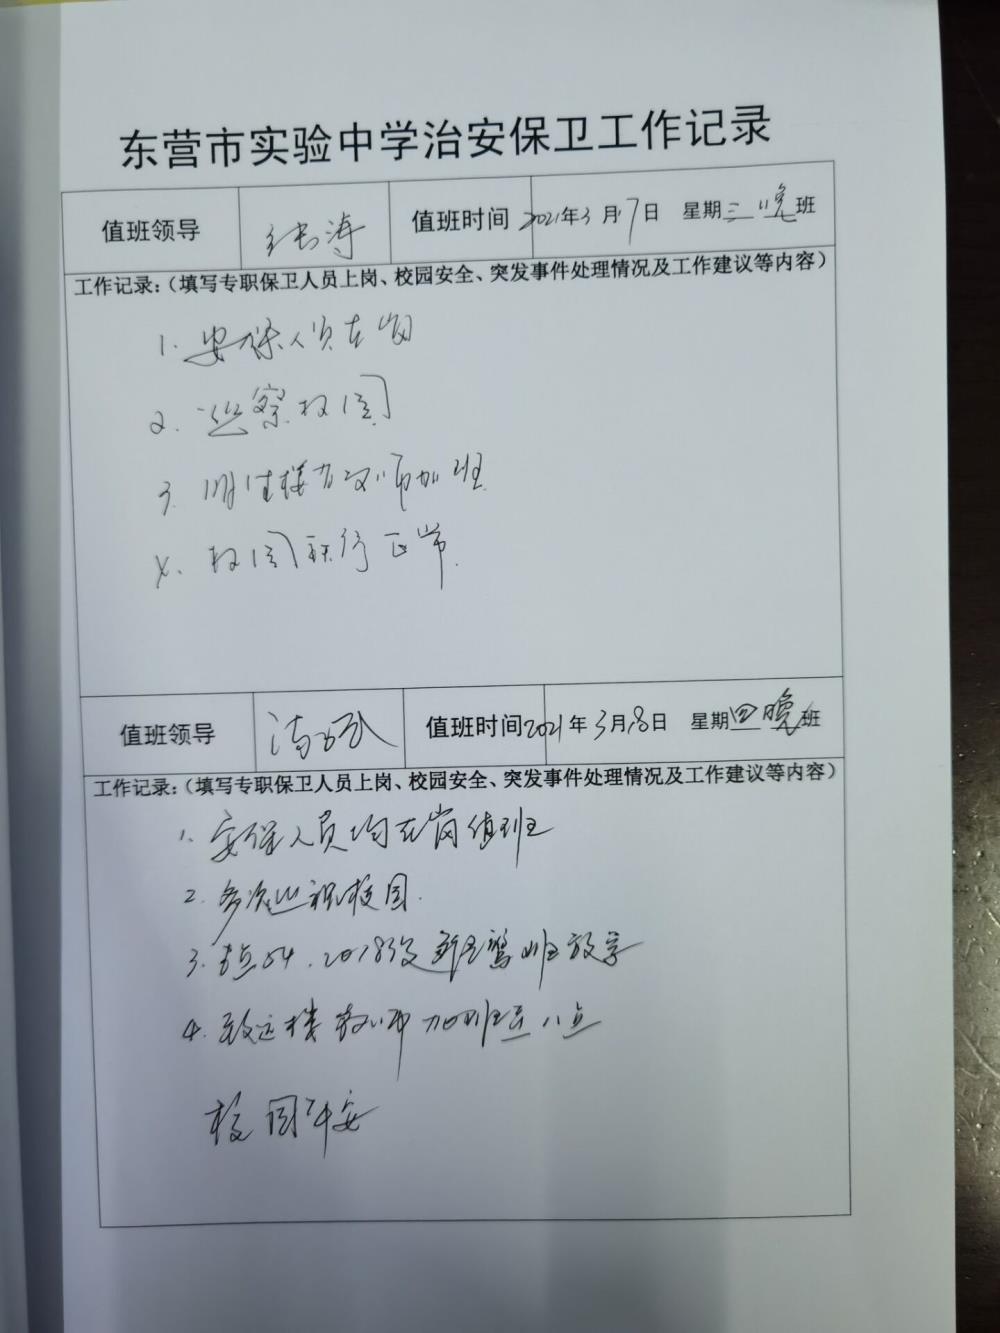 东营市实验中学治安保卫工作记录
值班领导 值班时间 2021年3月17日 星期三晚班
工作记录:(填写专职保卫人员上岗、校园安全、突发事件处理情况及工作建议等内容)
1. 安保人员在岗
2. 巡察校园
3. 明德楼有教师加班
4. 校园秩序正常.
值班领导 值班时间2021年3月18日 星期四晚班
工作记录:(填写专职保卫人员上岗、校园安全、突发事件处理情况及工作建议等内容)
1. 安保人员均在岗值班
2. 多次巡视校园.
3. 2018级 班放学
4. 致远楼教师加班至八点
校园平安